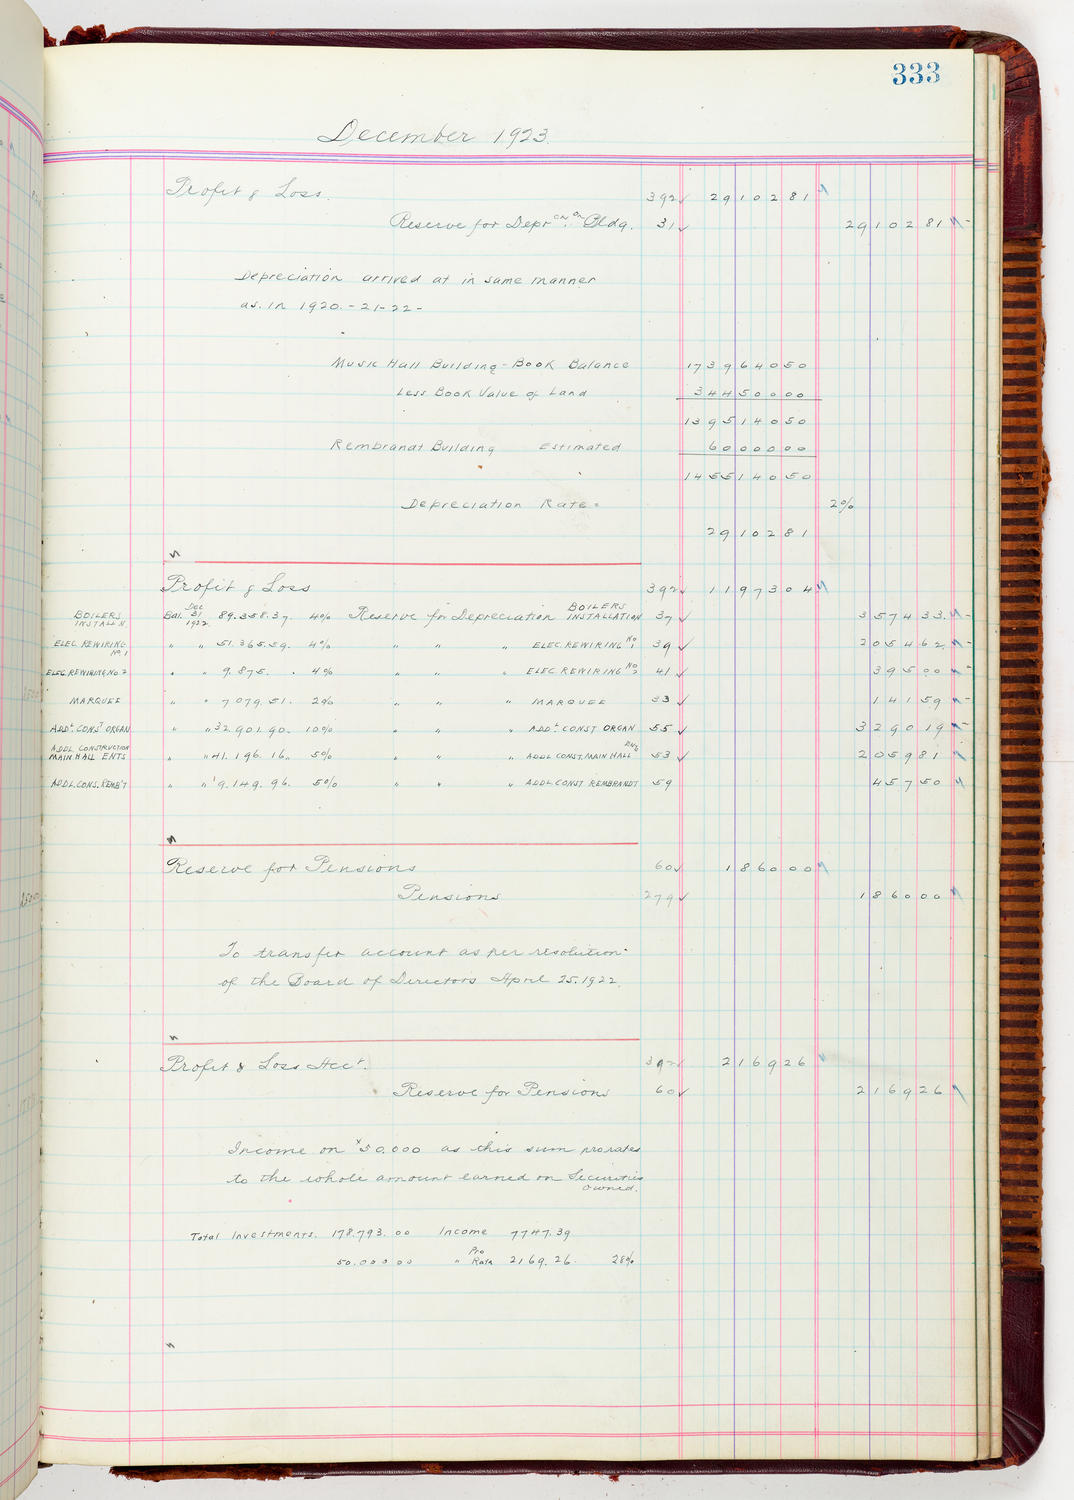 333
December 1923.
Profit & Loss. 392 ✓ 29 102 81
Reserve for Depr on. on Bldg. 31 ✓ 29 102 81
Depreciation arrived at in same manner
as. in 1920. - 21 - 22 -
Music Hall Building - Book Balance 1739640 50
Less Book Value of Land 344500 00
1395140 50
Rembrandt Building Estimated 60000 00
1455140 50
Depreciation Rate. 2%
29 102 81
Profit & Loss 392 ✓ 11973 04
BOILERS INSTALL'N. Bal. Dec 31 1922 89.358.37. 4% Reserve for Depreciation BOILERS INSTALLATION 37 ✓ 3574 33.
ELEC. REWIRING No. 1 " " 51.365.59. 4% " " " ELEC. REWIRING No 1 39 ✓ 2054 62.
ELEC. REWIRING No 2 " " 9.875. 4% " " " ELEC. REWIRING No 2 41 ✓ 395 00
MARQUEE " " 7079.51. 2% " " " MARQUEE 33 ✓ 141 59
ADD'L. CONST ORGAN " " 32.901.90. 10% " " " ADD'L. CONST ORGAN 55 ✓ 3290 19
ADDL CONSTRUCTION MAIN HALL ENTS " " 41.196.16. 5% " " " ADDL CONST. MAIN HALL 53 ✓ 2059 81
ADDL. CONS. REMB'T " " 9.149.96. 5% " " " ADDL. CONST REMBRANDT 59 457 50
Reserve for Pensions 60 ✓ 1860 00
Pensions 279 ✓ 1860 00
To transfer account as per resolution
of the Board of Directors April 25. 1922.
Profit & Loss Acct. 392 ✓ 2169 26
Reserve for Pensions 60 ✓ 2169 26
Income on $50.000 as this sum prorates
to the whole amount earned on Securities
owned.
Total Investments. 178.793.00 Income 7747.39
50.000 00 " Pro Rata 2169.26. 28%